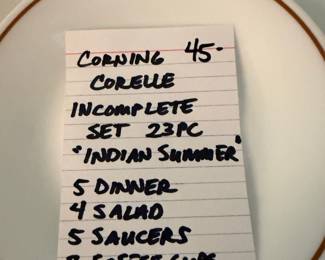 CORNING 45-
CORELLE
INCOMPLETE
SET 23PC
"INDIAN SUMMER"
5 DINNER
4 SALAD
5 SAUCERS
COFFEE CUPS